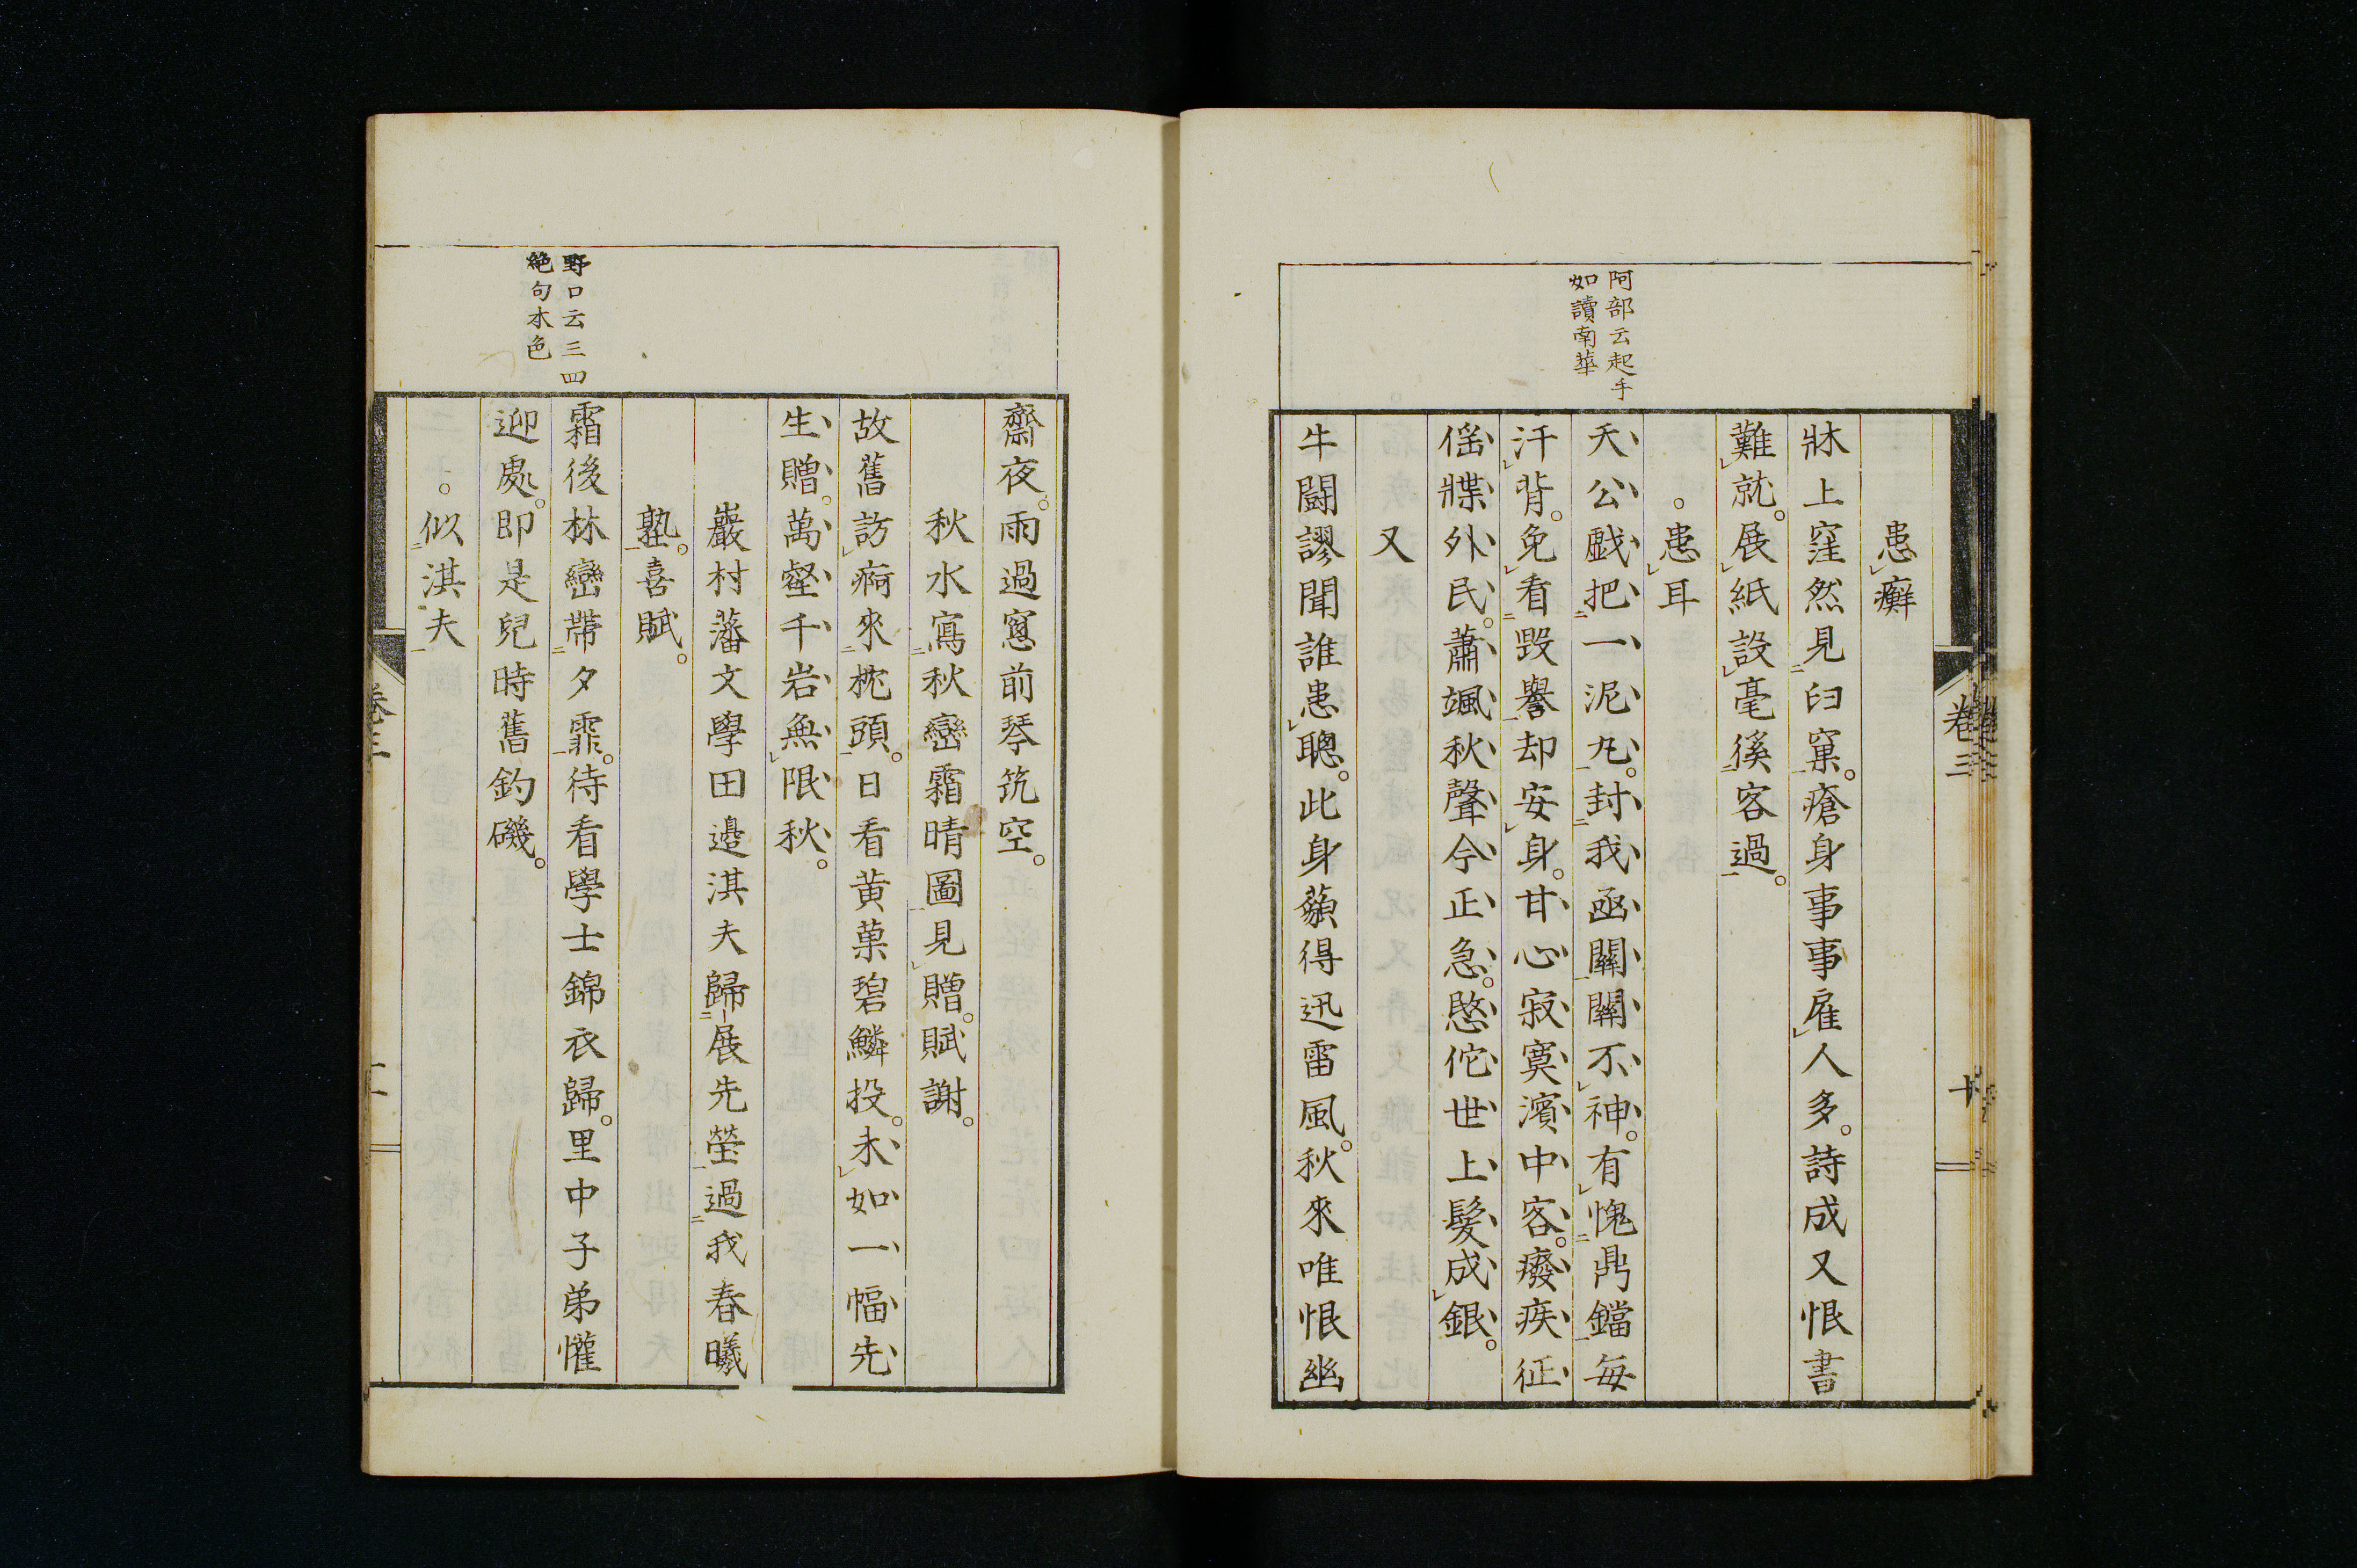 卷三
十
患癬
牀上窪然見臼窠。瘡身事事雇人多。詩成又恨書
難就。展紙設毫徯客過。
患耳
阿部云起手
如讀南華
夭公戲把一泥丸。封我函關關不神。有愧鼎鐺每
汗背。免看毀譽却安身。甘心寂寞濱中客。癈疾征
徭牒外民。蕭颯秋聲今正急。愍佗世上髮成銀。
又
牛闘謬聞誰患聰。此身蘋得迅雷風。秋來唯恨幽
齋夜。雨過窻前琴筑空。
秋水寫秋巒霜晴圖見贈。賦謝。
故舊訪痾來枕頭。日看黄菓碧鱗投。未如一幅先
生贈。萬壑千岩無限秋。
巖村藩文學田邉淇夫歸展先塋過我春曦
塾。喜賦。
野口云三四
絶句本色
霜後林巒帶夕霏。待看學士錦衣歸。里中子弟懽
迎處。即是兒時舊釣磯。
似淇夫
卷三